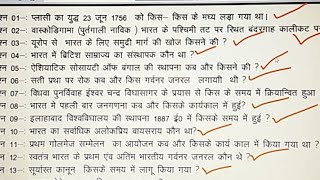 श्न 01--: प्लासी का युद्ध 23 जून 1756 को किस– किस के मध्य लड़ा गया था।
श्न 02--: वास्कोडिगामा (पुर्तगाली नाविक ) भारत के पश्चिमी तट पर स्थित बंदरगाह कालीकट प
श्न 03--: यूरोप से भारत के लिए समुद्री मार्ग की खोज किसने की ?
श्न 04--: भारत में ब्रिटिश साम्राज्य का संस्थापक कौन था ?
श्न 05--: ऐशियाटिक सोसायटी ऑफ बंगाल की स्थापना कब और किसने की ?
श्न 06--: सती प्रथा पर रोक कब और किस गवर्नर जनरल लगायी थी ?
श्न 07--: विधवा पुनर्विवाह ईश्वर चन्द्र विद्यासागर के प्रयास से किस के समय में क्रियान्वित हुआ
श्न 08--: भारत मे पहली बार जनगणना कब और किसके कार्यकाल में हुई?
श्न 09--: इलाहाबाद विश्वविद्यालय की स्थापना 1887 ई0 में किसके समय में हुई ?
श्न 10--: भारत का सर्वाधिक अलोकप्रिय वायसराय कौन था।
श्न 11--: प्रथम गोलमेज सम्मेलन का आयोजन कब और किसके कार्य काल में किया गया था।
श्न 12--: स्वतंत्र भारत के प्रथम एंव अतिम भारतीय गवर्नर जनरल कौन थे ?
श्न 13--: सूर्यास्त कानून किसके समय में लागू किया गया ?